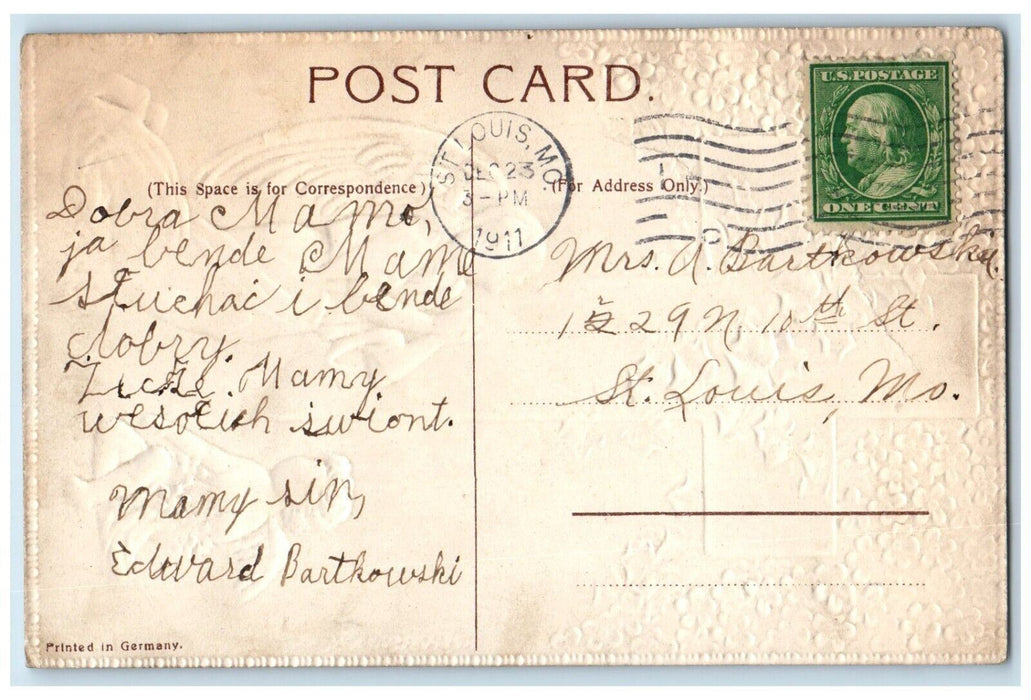 POST CARD.
U.S. POSTAGE
ONE CENT
ST. LOUIS, MO.
DEC 23
3 - PM
1911
(This Space is for Correspondence)
(For Address Only.)
Dobra Mamo,
ja bende Mame
słuchać i bende
dobry.
Życze Mamy
wesolich swiont.
Mamy sin,
Edward Bartkowski
Mrs. A. Bartkowski.
1529 N. 10th St.
St. Louis, Mo.
Printed in Germany.